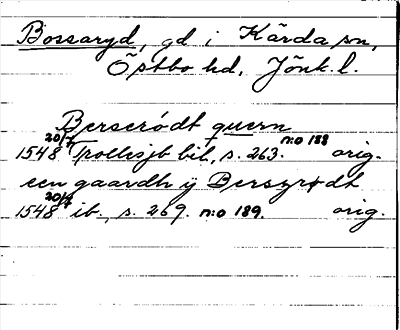 Bossaryd, gd i Kärda sn,
Östbo hd, Jönk. l.
Berserødt quern
1548 20/7 Trollesjb bil, s. 263. n:o 188 orig.
een gaardh ÿ Berszrødt
1548 20/7 ib., s. 269. n:o 189. orig.